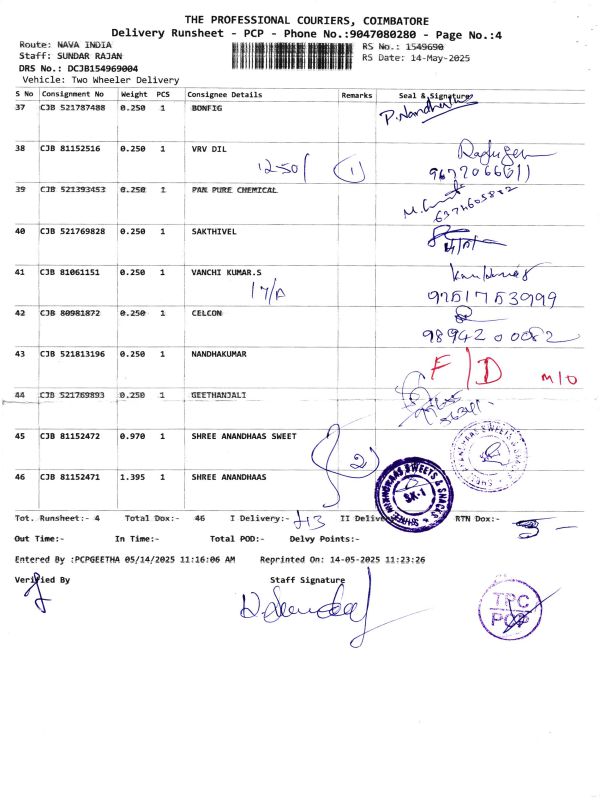 THE PROFESSIONAL COURIERS, COIMBATORE
Delivery Runsheet - PCP - Phone No.:9047080280 - Page No.:4
Route: NAVA INDIA RS No.: 1549690
Staff: SUNDAR RAJAN RS Date: 14-May-2025
DRS No.: DCJB154969004
Vehicle: Two Wheeler Delivery
S No Consignment No Weight PCS Consignee Details Remarks Seal & Signature
37 CJB 521787488 0.250 1 BONFIG P. Nandhu
38 CJB 81152516 0.250 1 VRV DIL
1250/ 1 9677066611
39 CJB 521393453 0.250 1 PAN PURE CHEMICAL
40 CJB 521769828 0.250 1 SAKTHIVEL
41 CJB 81061151 0.250 1 VANCHI KUMAR.S
17/A 97517 53999
42 CJB 80981872 0.250 1 CELCON
98942 00082
43 CJB 521813196 0.250 1 NANDHAKUMAR F/D M/O
44 CJB 521769893 0.250 1 GEETHANJALI
45 CJB 81152472 0.970 1 SHREE ANANDHAAS SWEET
2
46 CJB 81152471 1.395 1 SHREE ANANDHAAS
SHREE ANANDHAAS SWEETS & SNACKS
SK-1
Tot. Runsheet:- 4 Total Dox:- 46 I Delivery:- 43 II Delivery:- RTN Dox:- 3 -
Out Time:- In Time:- Total POD:- Delvy Points:-
Entered By :PCPGEETHA 05/14/2025 11:16:06 AM Reprinted On: 14-05-2025 11:23:26
Verified By Staff Signature
TPC
PCP